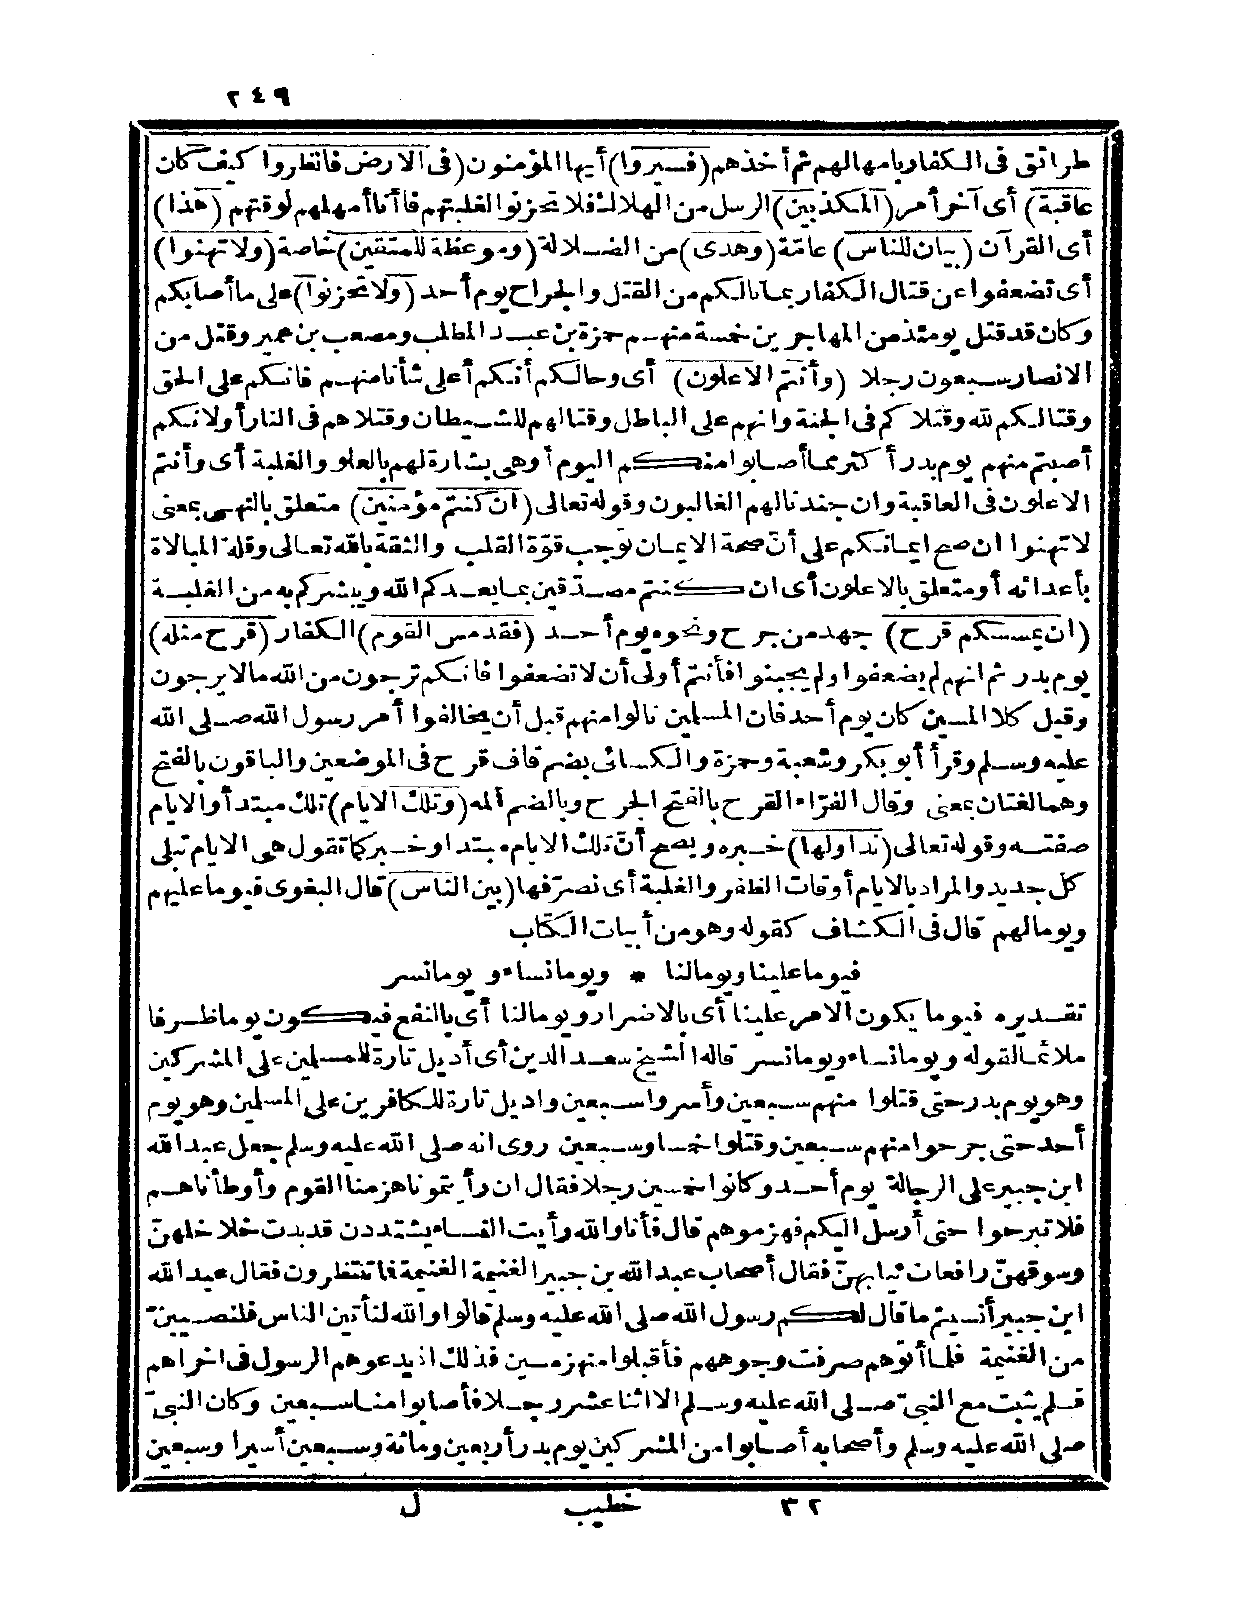 ٢٤٩
طرائق فى الكفار بامهالهم ثم أخذهم (فسيروا) أيها المؤمنون (فى الارض فانظروا كيف كان
عاقبة) أى آخر أمر (المكذبين) الرسل من الهلاك فلا تحزنوا لغلبتهم فأنا أمهلهم لوقتهم (هذا)
أى القرآن (بيان للناس) عامّة (وهدى) من الضلالة (وموعظة للمتقين) خاصة (ولا تهنوا)
أى تضعفوا عن قتال الكفار بما نالكم من القتل والجراح يوم أحد (ولا تحزنوا) على ما أصابكم
وكان قد قتل يومئذ من المهاجرين خمسة منهم حمزة بن عبد المطلب ومصعب بن عمير وقتل من
الانصار سبعون رجلا (وأنتم الاعلون) أى وحالكم أنكم أعلى شأنا منهم فانكم على الحق
وقتالكم لله وقتلاكم فى الجنة وانهم على الباطل وقتالهم للشيطان وقتلاهم فى النار أو لانكم
أصبتم منهم يوم بدر أكثر مما أصابوا منكم اليوم أو هى بشارة لهم بالعلو والغلبة أى وأنتم
الاعلون فى العاقبة وان جندنا لهم الغالبون وقوله تعالى (ان كنتم مؤمنين) متعلق بالنهى بمعنى
لا تهنوا ان صح ايمانكم على أنّ صحة الايمان توجب قوّة القلب والثقة بالله تعالى وقلة المبالاة
بأعدائه أو متعلق بالاعلون أى ان كنتم مصدقين بما يعدكم الله ويبشركم به من الغلبة
(ان يمسسكم قرح) جهد من جرح ونحوه يوم أحد (فقد مس القوم) الكفار (قرح مثله)
يوم بدر ثم انهم لم يضعفوا ولم يجبنوا فأنتم أولى أن لا تضعفوا فانكم ترجون من الله مالا يرجون
وقيل كلا المسين كان يوم أحد فان المسلمين نالوا منهم قبل أن يخالفوا أمر رسول الله صلى الله
عليه وسلم وقرأ أبو بكر وشعبة وحمزة والكسائى بضم قاف قرح فى الموضعين والباقون بالفتح
وهما لغتان بمعنى وقال الفرّاء القرح بالفتح الجرح وبالضم ألمه (وتلك الايام) تلك مبتدأ والايام
صفته وقوله تعالى (نداولها) خبره ويصح أنّ تلك الايام مبتدا وخبر كما تقول هى الايام تبلى
كل جديد والمراد بالايام أوقات الظفر والغلبة أى نصرّفها (بين الناس) قال البغوى فيوما عليهم
ويوما لهم قال فى الكشاف كقوله وهو من أبيات الكتاب
فيوما علينا ويوما لنا * ويوما نساء ويوما نسر
تقديره فيوما يكون الامر علينا أى بالاضرار ويوما لنا أى بالنفع فيكون يوما ظرفا
ملائما لقوله ويوما نساء ويوما نسر قاله الشيخ سعد الدين أى أديل تارة للمسلمين على المشركين
وهو يوم بدر حتى قتلوا منهم سبعين وأسروا سبعين واديل تارة للكافرين على المسلمين وهو يوم
أحد حتى جرحوا منهم سبعين وقتلوا خمسا وسبعين روى انه صلى الله عليه وسلم جعل عبد الله
ابن جبير على الرجالة يوم أحد وكانوا خمسين رجلا فقال ان رأيتمونا هزمنا القوم وأوطأناهم
فلا تبرحوا حتى أرسل اليكم فهزموهم قال فأنا والله رأيت النساء يشتددن قد بدت خلاخلهنّ
وسوقهنّ رافعات ثيابهنّ فقال أصحاب عبد الله بن جبير الغنيمة الغنيمة فما تنتظرون فقال عبد الله
ابن جبير أنسيتم ما قال لكم رسول الله صلى الله عليه وسلم قالوا والله لنأتين الناس فلنصيبنّ
من الغنيمة فلما أتوهم صرفت وجوههم فأقبلوا منهزمين فذلك اذ يدعوهم الرسول فى اخراهم
فلم يثبت مع النبىّ صلى الله عليه وسلم الا اثنا عشر رجلا فأصابوا منا سبعين وكان النبىّ
صلى الله عليه وسلم وأصحابه أصابوا من المشركين يوم بدر أربعين ومائة وسبعين أسيرا وسبعين
٣٢ خطيب ل